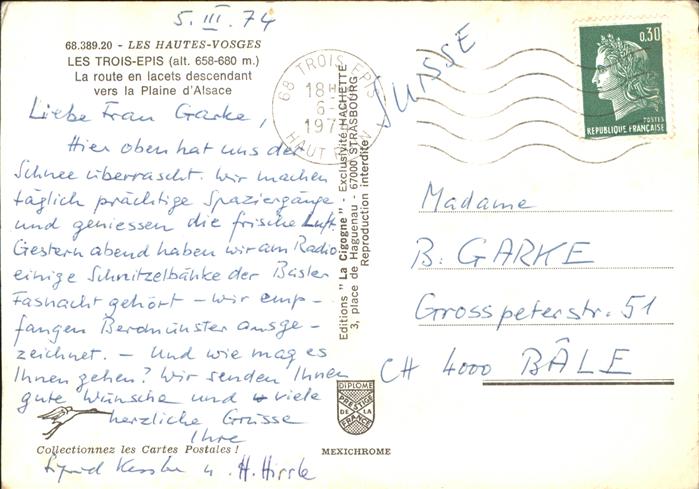 5. III. 74
68.389.20 - LES HAUTES-VOSGES
LES TROIS-EPIS (alt. 658-680 m.)
La route en lacets descendant
vers la Plaine d'Alsace
Liebe Frau Garke,
Hier oben hat uns der
Schnee überrascht. Wir machen
täglich prächtige Spaziergänge
und geniessen die frische Luft.
Gestern abend haben wir am Radio
einige Schnitzelbänke der Basler
Fasnacht gehört – wir emp-
fangen Beromünster ausge-
zeichnet. – Und wie mag es
Ihnen gehen? Wir senden Ihnen
gute Wünsche und viele
herzliche Grüsse
Ihre
Sigrid Kessler u. H. Hirrle
Collectionnez les Cartes Postales !
Editions "La Cigogne" - Exclusivité HACHETTE
3, place de Haguenau - 67000 STRASBOURG
Reproduction interdite
DIPLOME
PRESTIGE
DE LA
FRANCE
MEXICHROME
68 TROIS EPIS
18H
6-
197
HAUT RHIN
SUISSE
0,30
POSTES
REPUBLIQUE FRANÇAISE
Madame
B. GARKE
Grosspeterstr. 51
CH 4000 BÂLE